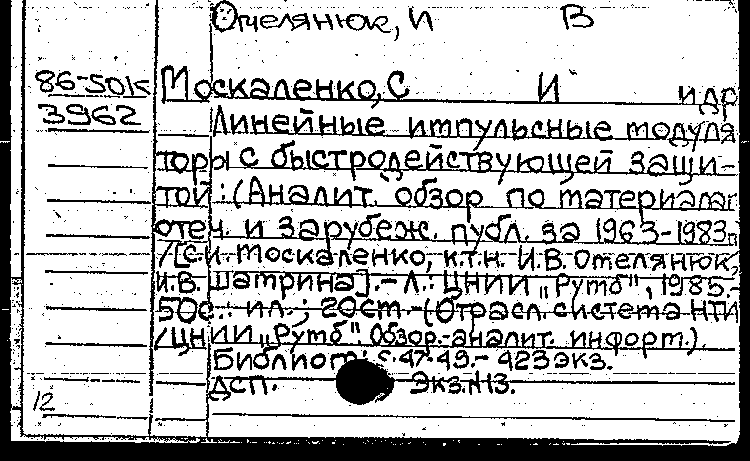 Омелянюк, И В
86-50К Москаленко, С И и др
3962 Линейные импульсные модуля
торы с быстродействующей защи-
той: (Аналит. обзор по материалам
отеч. и зарубеж. публ. за 1963-1983г
/[С.И. Москаленко, к.т.н. И.В. Омелянюк,
И.В. Шатрина]. - Л.: ЦНИИ „Румб", 1985.-
50с.: ил.; 20см.-(Отрасл. система НТИ
/ЦНИИ „Румб". Обзор.-аналит. информ.).
Библиогр.: с.47-49.- 423 экз.
ДСП. Экз.N13.
12